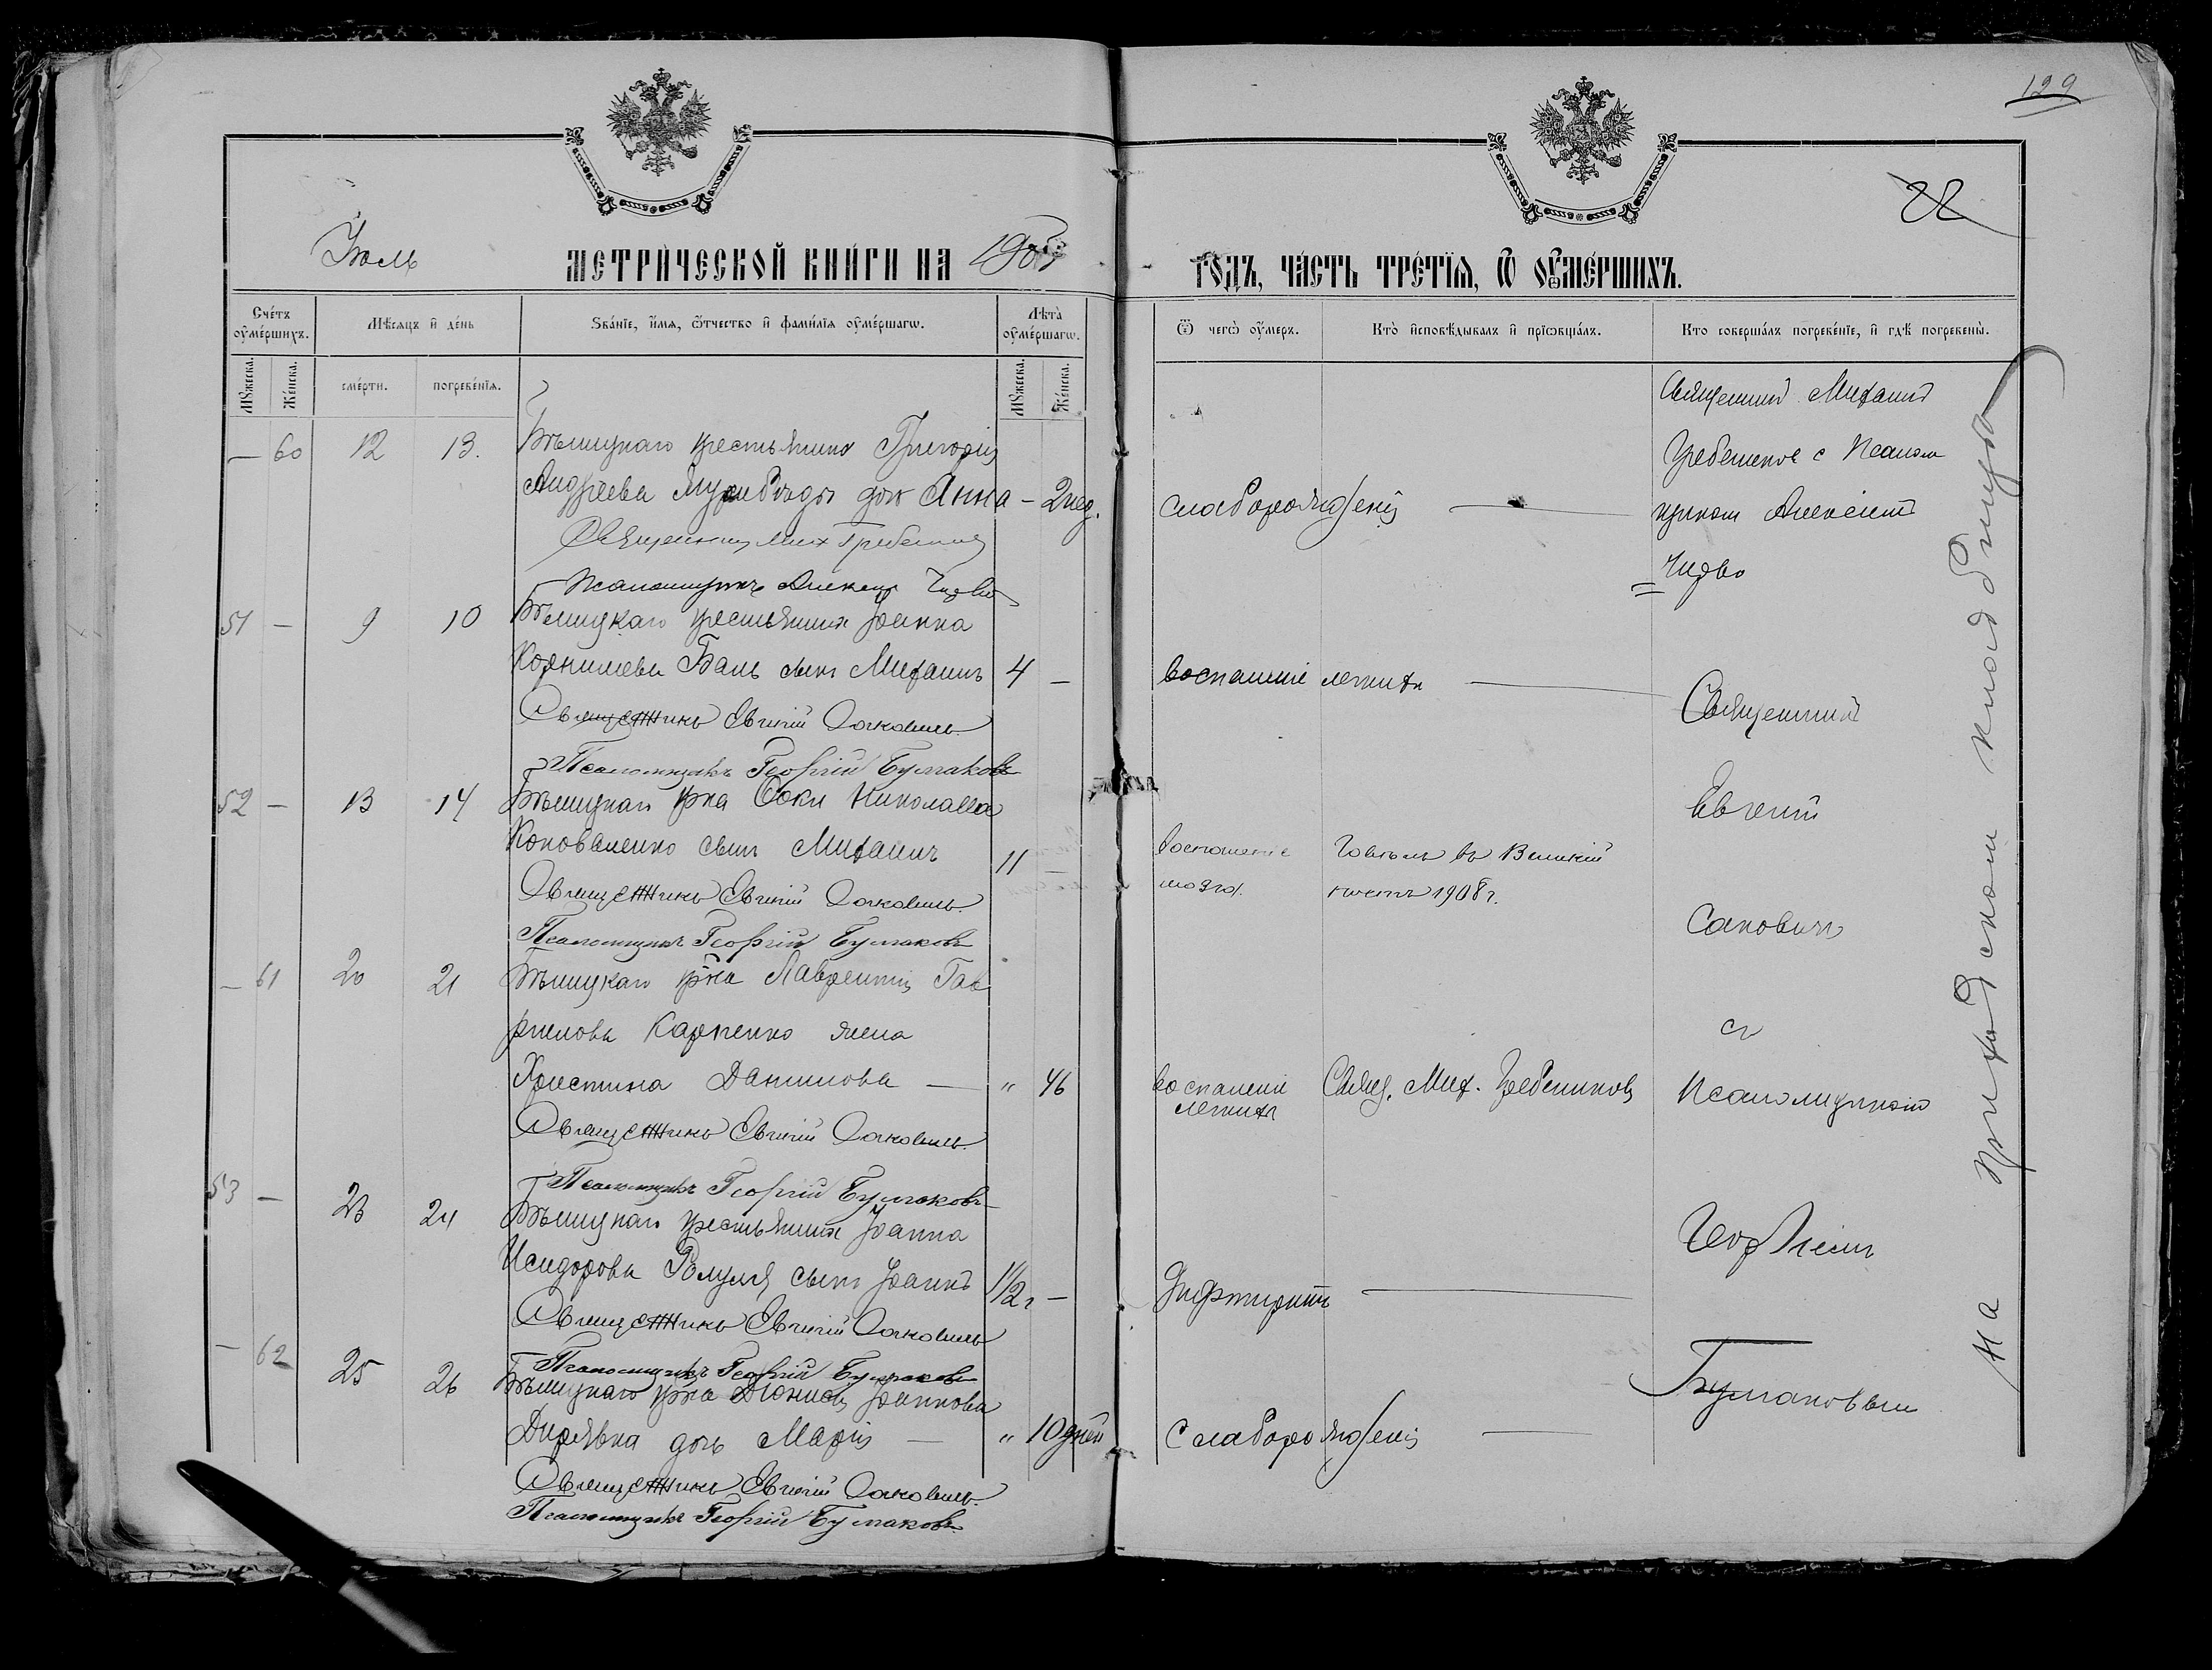 129
22
Іюль
МЕТРИЧЕСКОЙ КНИГИ НА 1908
ГОДЪ, ЧАСТЬ ТРЕТІЯ, Ѿ ОУМЕРШИХЪ.
Счетъ оумершихъ.
Мѣсяцъ и день
Званіе, имя, ѿтчество и фамилія оумершагѡ.
Лѣта оумершагѡ.
Ѿ чегѡ оумеръ.
Кто исповѣдывалъ и пріѡбщалъ.
Кто совершалъ погребеніе, и гдѣ погребены.
Мужеска.
Женска.
смерти.
погребенія.
Мужеска.
Женска.
— 60 12 13. Бѣлицкаго крестьянина Григорія
Андреева дочь Анна — 2 нед.
слаборожденія —
Священникъ Михаилъ
Гребенниковъ с Псалом
щикомъ Алексіемъ
Чирво
Священникъ Мих Гребенник
Псаломщикъ Алексѣй Чирво
51 — 9 10 Бѣлицкаго крестьянина Іоанна
Корнилева Баль сынъ Михаилъ 4 —
воспаленіе легкихъ —
Священникъ Евгеній
Псаломщикъ Георгій Булгаковъ
52 — 13 14 Бѣлицкаго кр-на Ѳоки Николаева
Коноваленко сынъ Михаилъ 11
воспаленіе
мозга.
Говѣлъ въ Великій
постъ 1908 г.
Священникъ Евгеній
Псаломщикъ Георгій Булгаковъ
— 61 20 21 Бѣлицкаго кр-на Лаврентія Гав
рилова Карпенко жена
Христина Данилова — " 46
воспаленіе
легкихъ
Свящ. Мих. Гребенниковъ
Священникъ Евгеній
Псаломщикъ Георгій Булгаковъ
53 — 23 24 Бѣлицкаго крестьянина Іоанна
Исидорова сынъ Іоаннъ 1/2 г —
Дифтиритъ —
Священникъ Евгеній
Псаломщикъ Георгій Булгаковъ
— 62 25 26 Бѣлицкаго кр-на Діонисія Іоаннова
дочь Марія — " 10 дней
Слаборожденія —
Священникъ Евгеній
Псаломщикъ Георгій Булгаковъ
Священникъ
Евгеній
съ
Псаломщикомъ
Георгіемъ
Булгаковымъ
На приходскомъ кладбищѣ